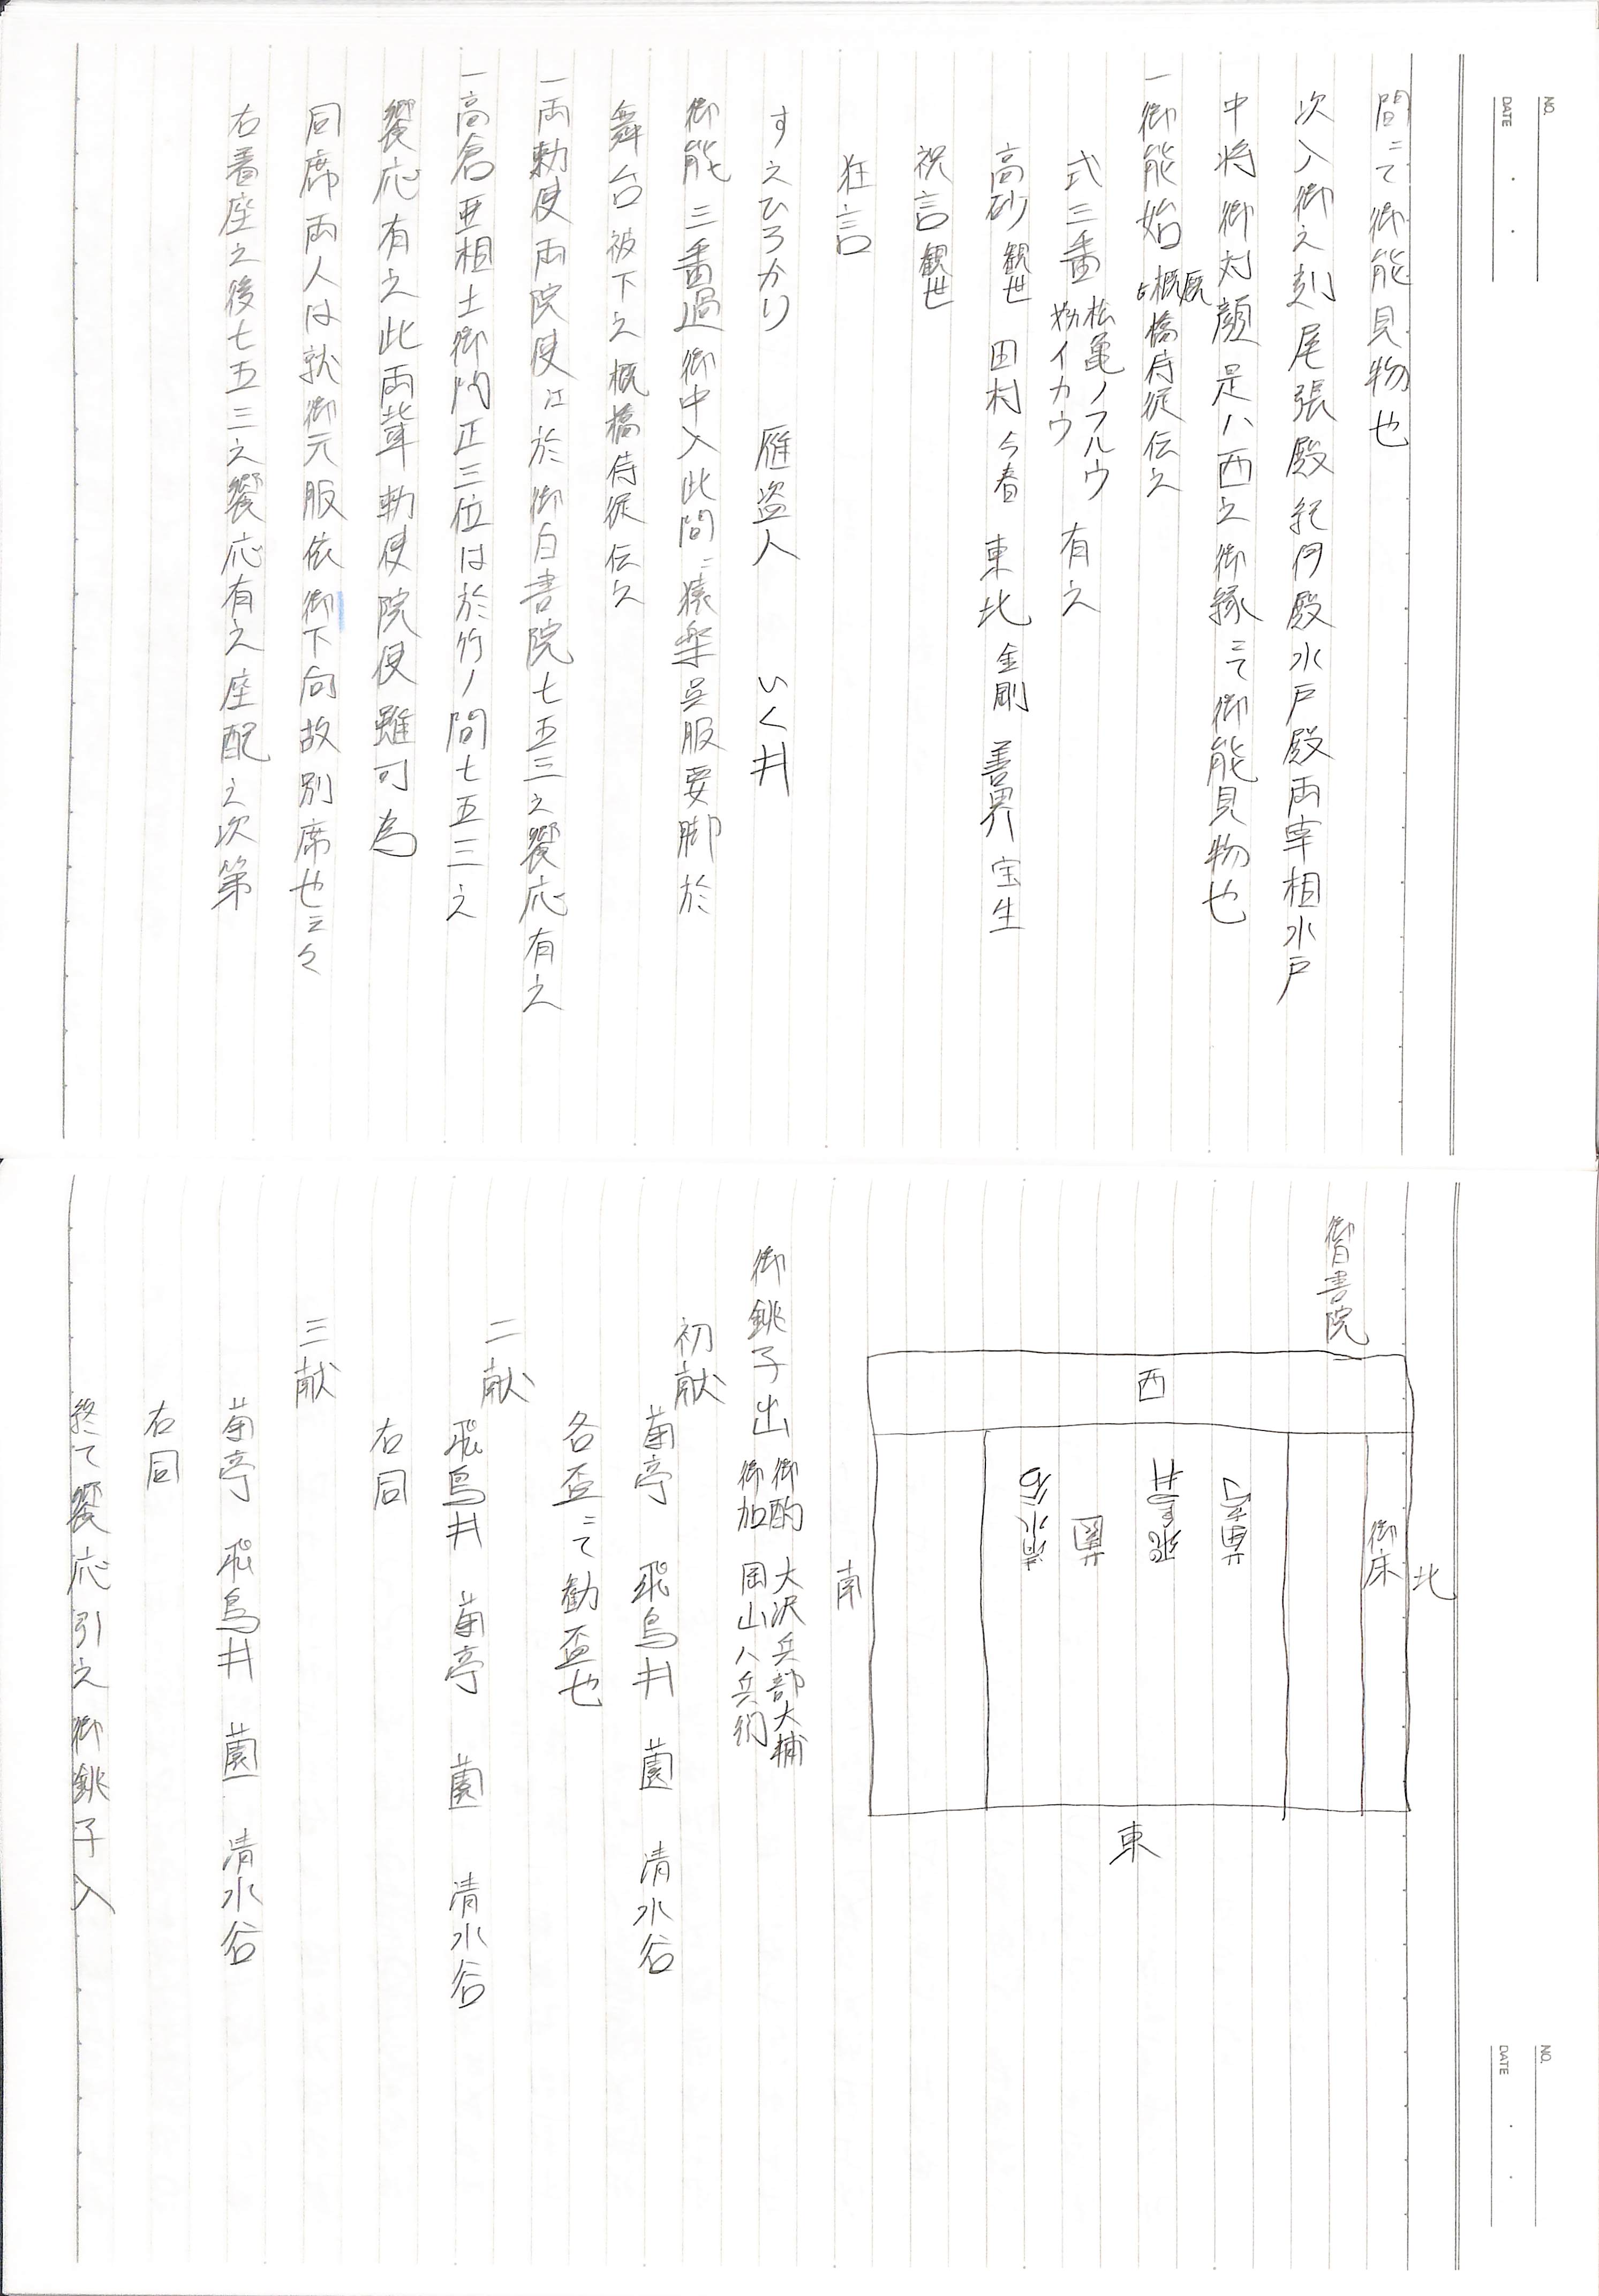 NO.
DATE
間ニて御能見物也
次入御之刻尾張殿紀伊殿水戸殿両宰相水戸
中将御対顔是ハ西之御縁ニて御能見物也
一御能始 概橋侍従伝之
式三番 松亀ノフルウ 有之
高砂 観世 田村 今春 東北 金剛 善界 宝生
祝言 観世
狂言
すえひろかり 雁盗人 いくゐ
御能三番過御中入此間ニ猿楽呉服要脚於
舞台被下之概橋侍従伝之
一両勅使両院使江於御白書院七五三之饗応有之
一高倉亜相土御門正三位は於竹ノ間七五三之
饗応有之此両輩勅使院使雖可為
同席両人は就御元服依御下向故別席也云々
右着座之後七五三之饗応有之座配之次第
NO.
DATE
御白書院
北
御床
西
菊亭
飛鳥井
園
清水谷
東
南
御銚子出 御酌 大沢兵部大輔
御加 岡山八兵衛
初献
菊亭 飛鳥井 園 清水谷
各盃ニて勧盃也
二献
飛鳥井 菊亭 園 清水谷
右同
三献
菊亭 飛鳥井 園 清水谷
右同
終て饗応引之御銚子入